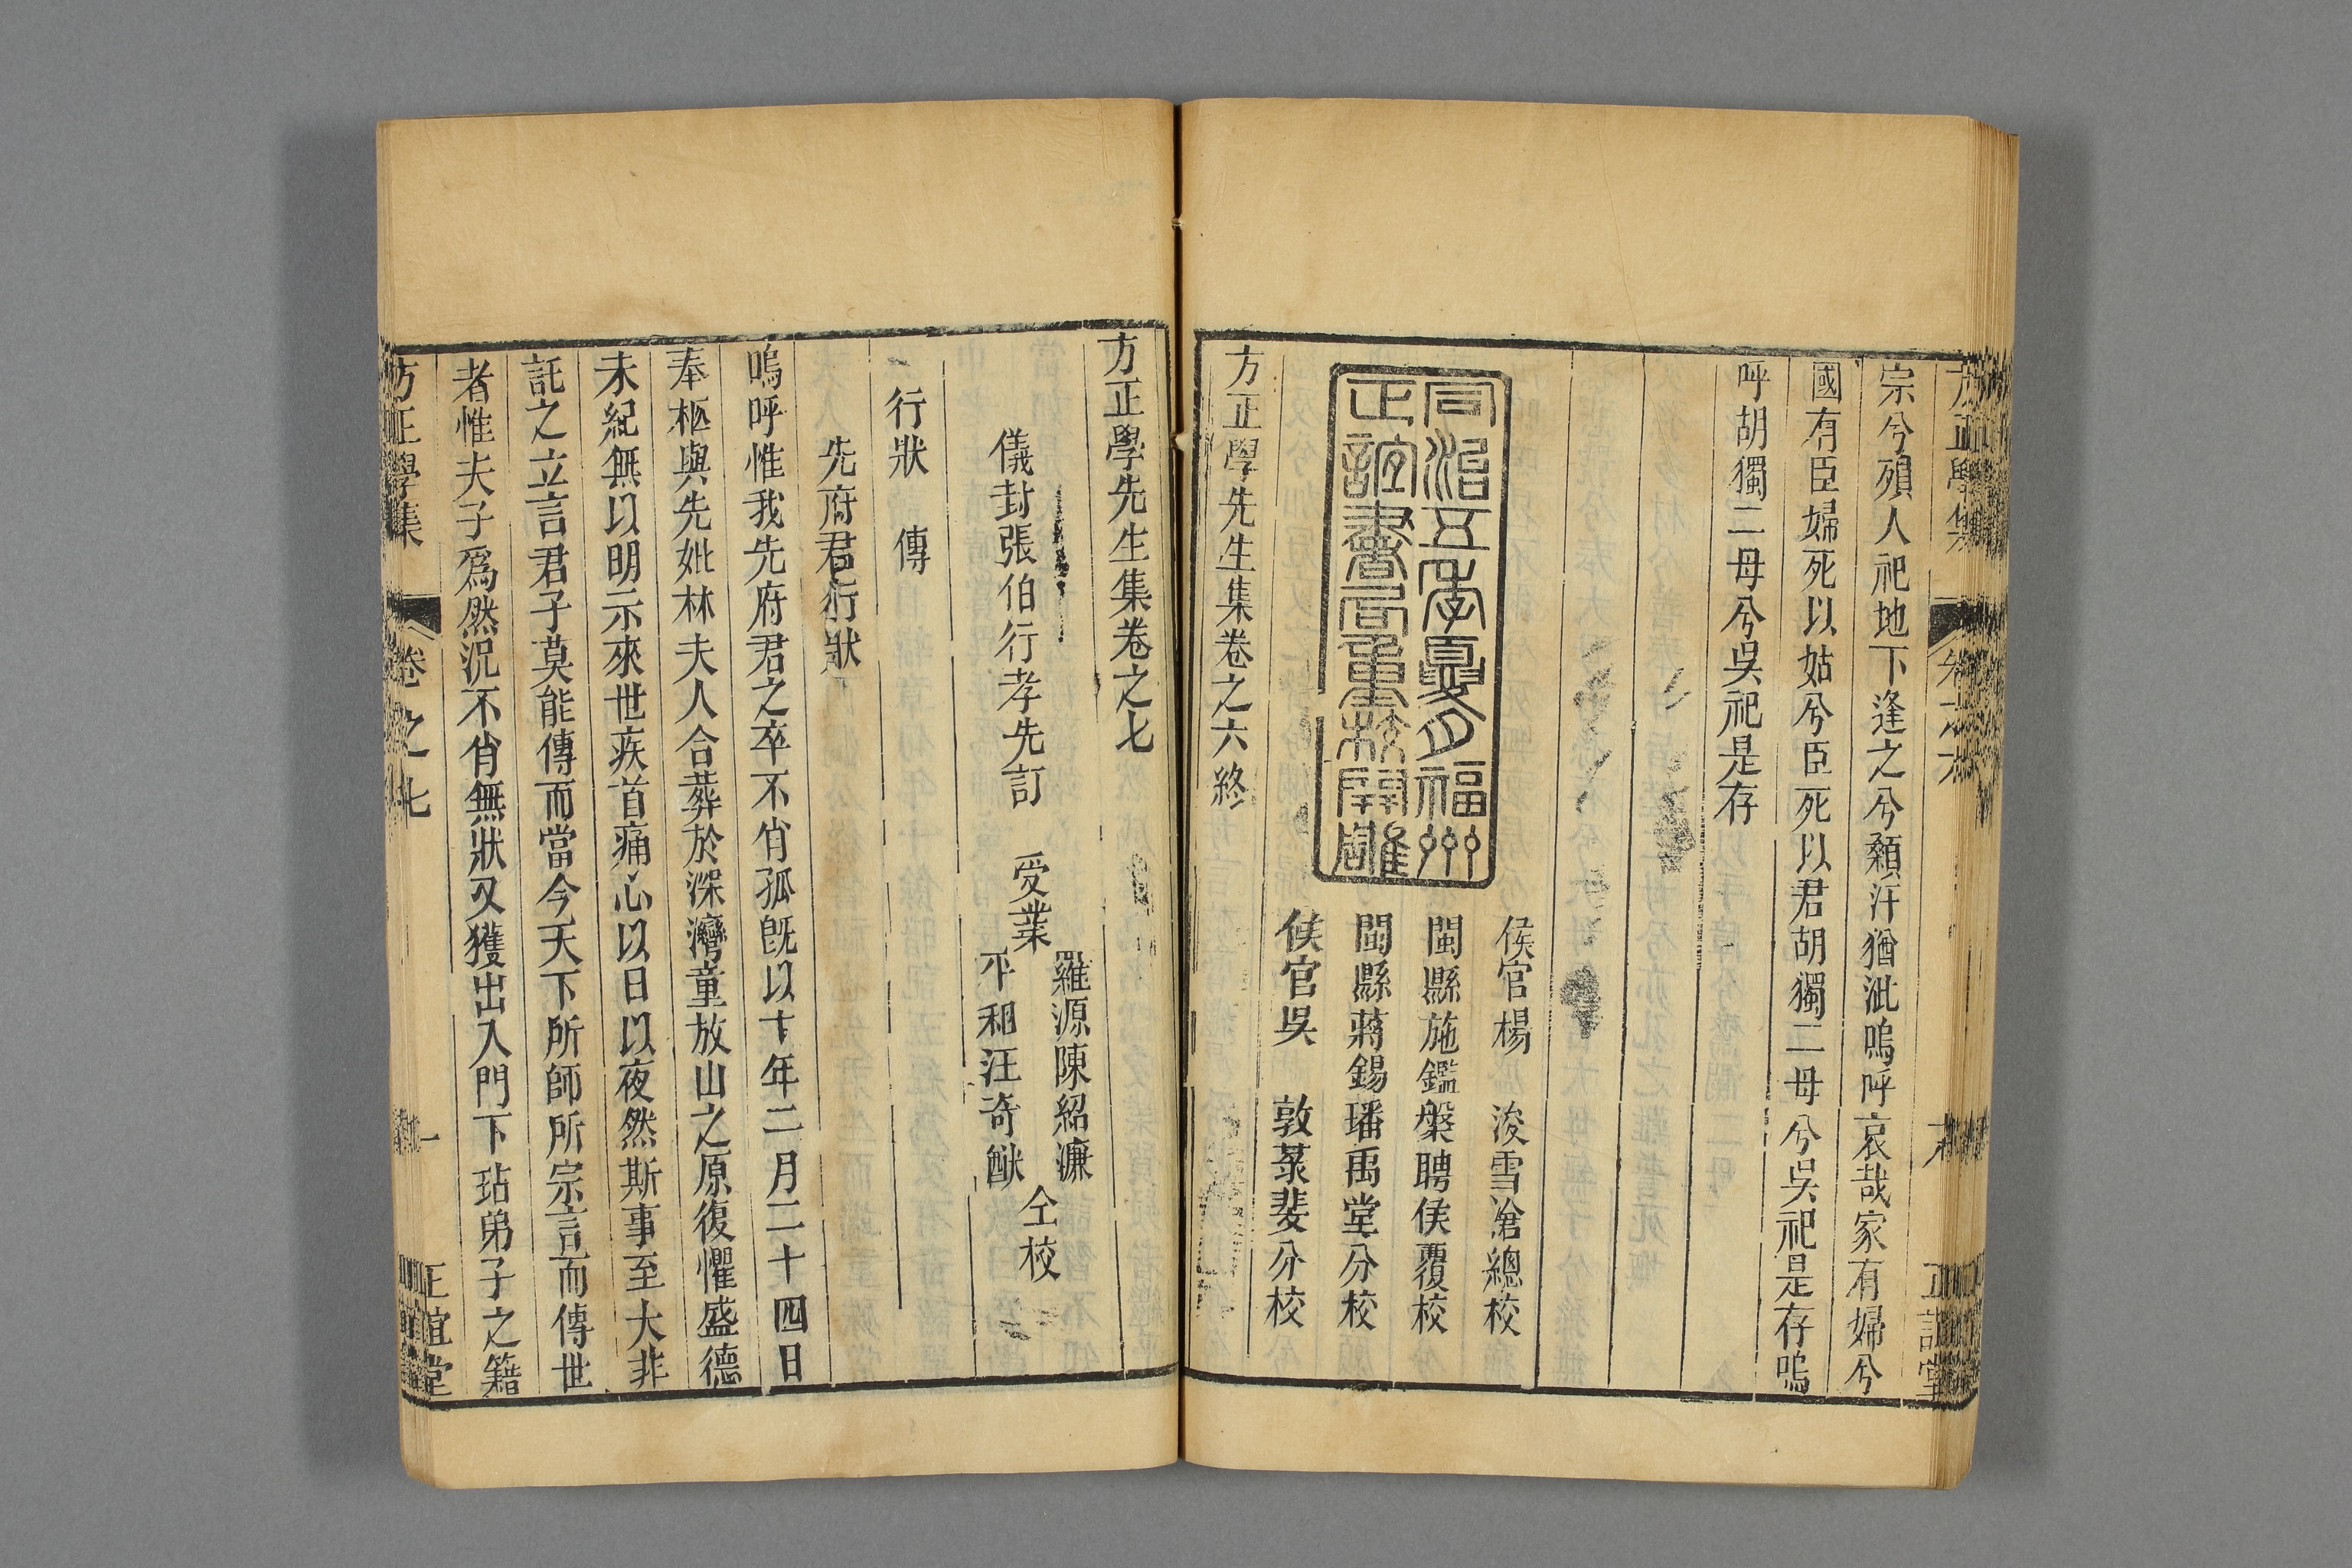 宗兮殞人祀地下逢之兮顙汗猶泚嗚呼哀哉家有婦兮
國有臣婦死以姑兮臣死以君胡獨二母兮吳祀是存嗚
呼胡獨二母兮吳祀是存
同治五年夏月福州
正誼書局重校開雕
侯官楊 浚雪滄總校
閩縣施鑑槃聘侯覆校
閩縣蔣錫璠禹堂分校
侯官吳 敦菉斐分校
方正學先生集卷之六終
方正學先生集卷之七
儀封張伯行孝先訂 受業
羅源陳紹濂
平和汪奇猷
仝校
行狀 傳
先府君行狀
嗚呼惟我先府君之卒不肖孤旣以十年二月二十四日
奉柩與先妣林夫人合葬於深灣童放山之原復懼盛德
未紀無以明示來世疾首痛心以日以夜然斯事至大非
託之立言君子莫能傳而當今天下所師所宗言而傳世
者惟夫子爲然況不肖無狀又獲出入門下玷弟子之籍
方正學集
卷之七
一
正誼堂